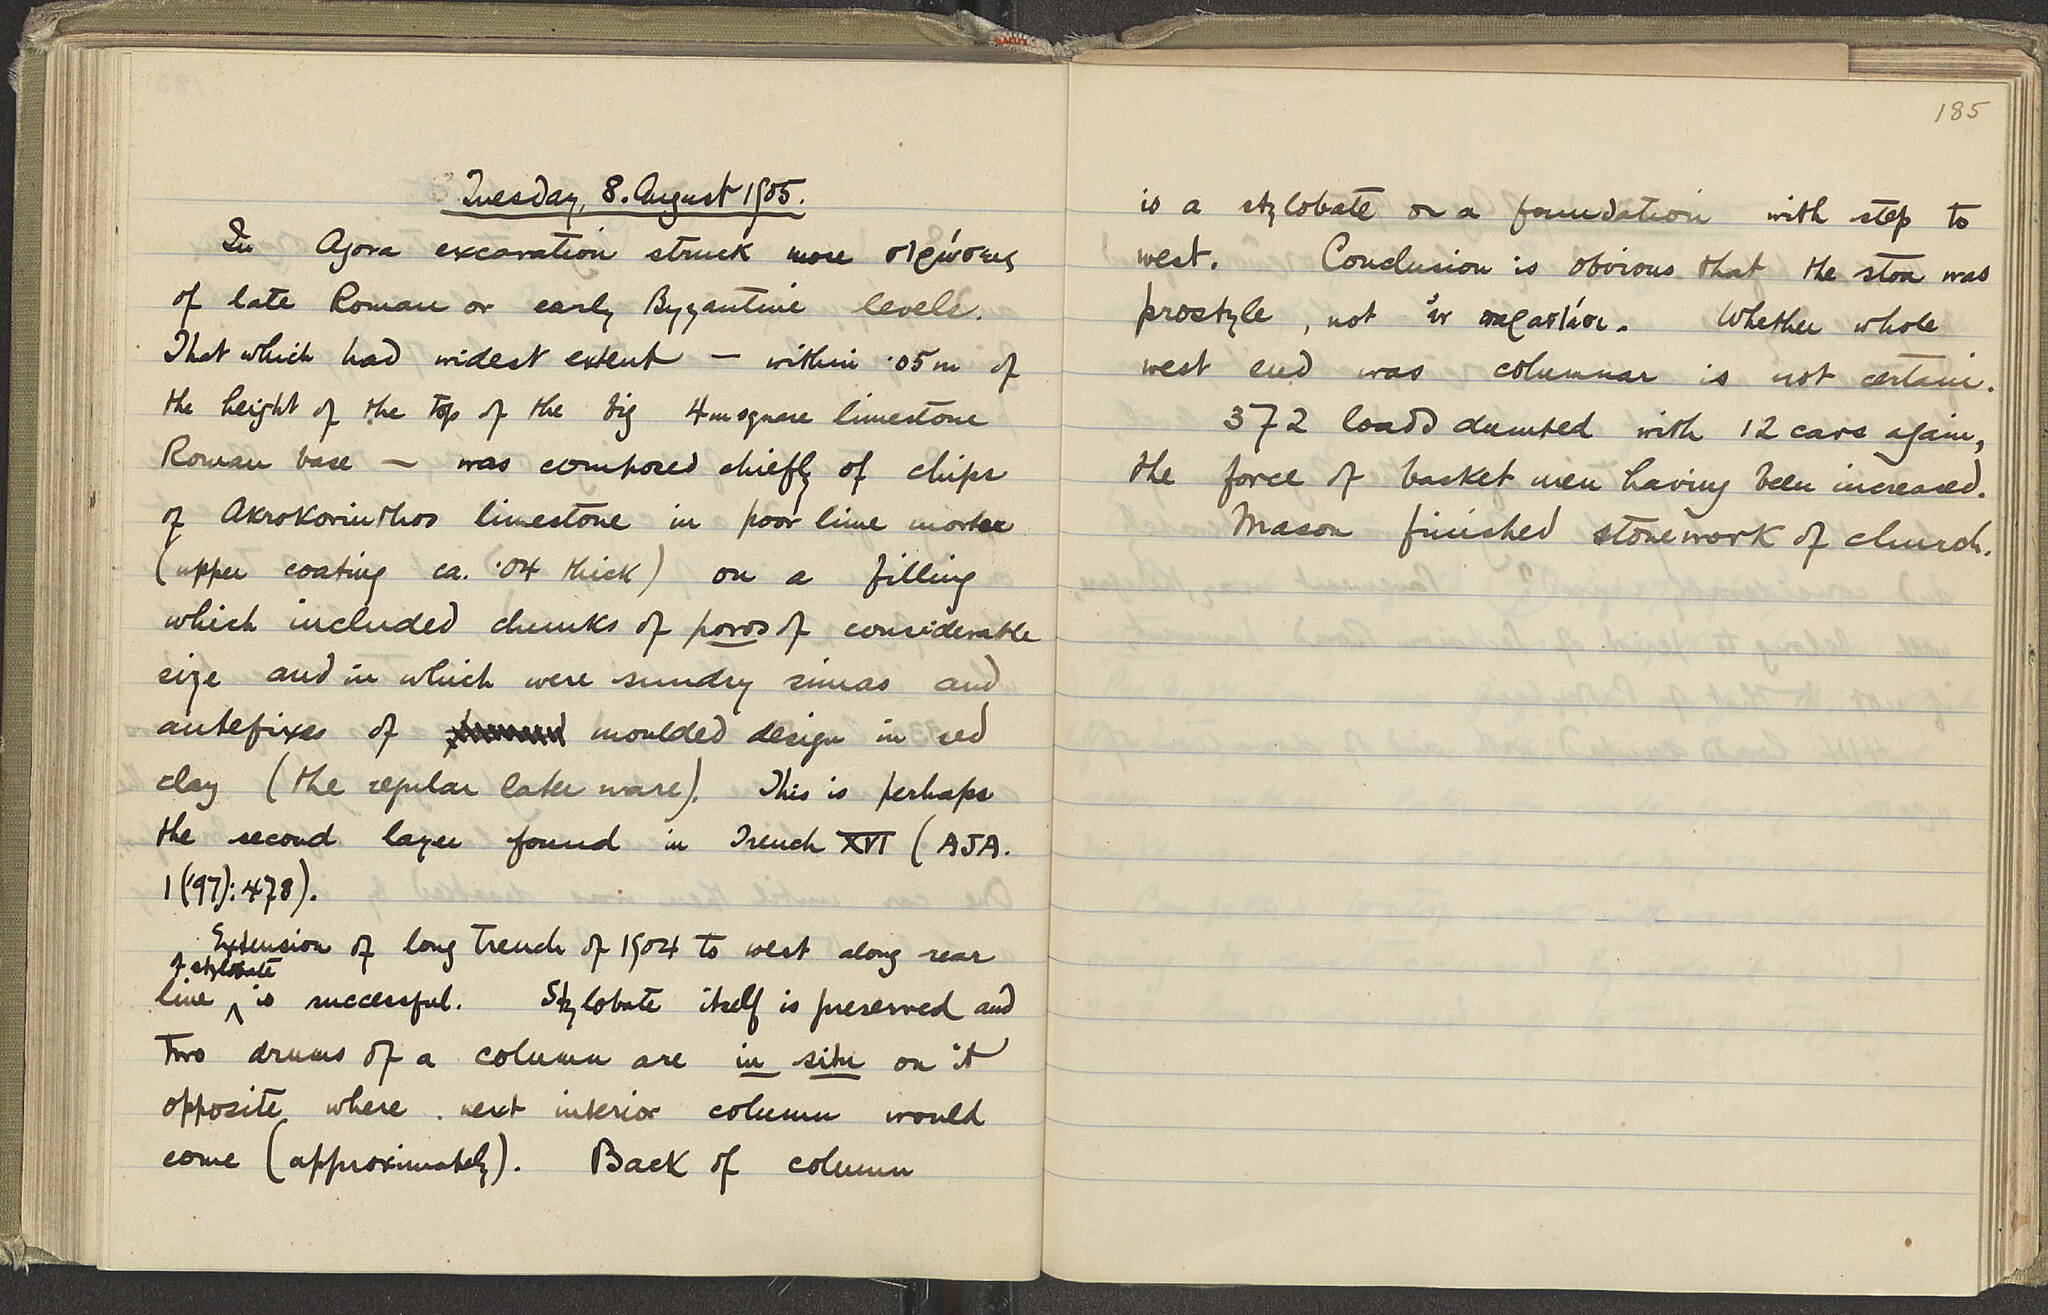 Tuesday, 8. August 1905.
In Agora excavation struck more στρώσεις
of late Roman or early Byzantine levels.
That which had widest extent — within .05m of
the height of the top of the big 4m square limestone
Roman base — was composed chiefly of chips
of Akrokorinthos limestone in poor lime mortar
(upper coating ca. .04 thick) on a filling
which included chunks of poros of considerable
size and in which were sundry simas and
antefixes of moulded design in red
clay (the regular later ware). This is perhaps
the second layer found in Trench XVI (AJA.
1 ('97): 478).
Extension of long trench of 1904 to west along rear
of stylobate
line ^ is successful. Stylobate itself is preserved and
two drums of a column are in situ on it
opposite where next interior column would
come (approximately). Back of column
185
is a stylobate or a foundation with step to
west. Conclusion is obvious that the stoa was
prostyle, not
Whether whole
west end was columnar is not certain.
372 loads dumted with 12 cars again,
the force of basket men having been increased.
Mason finished stonework of church.